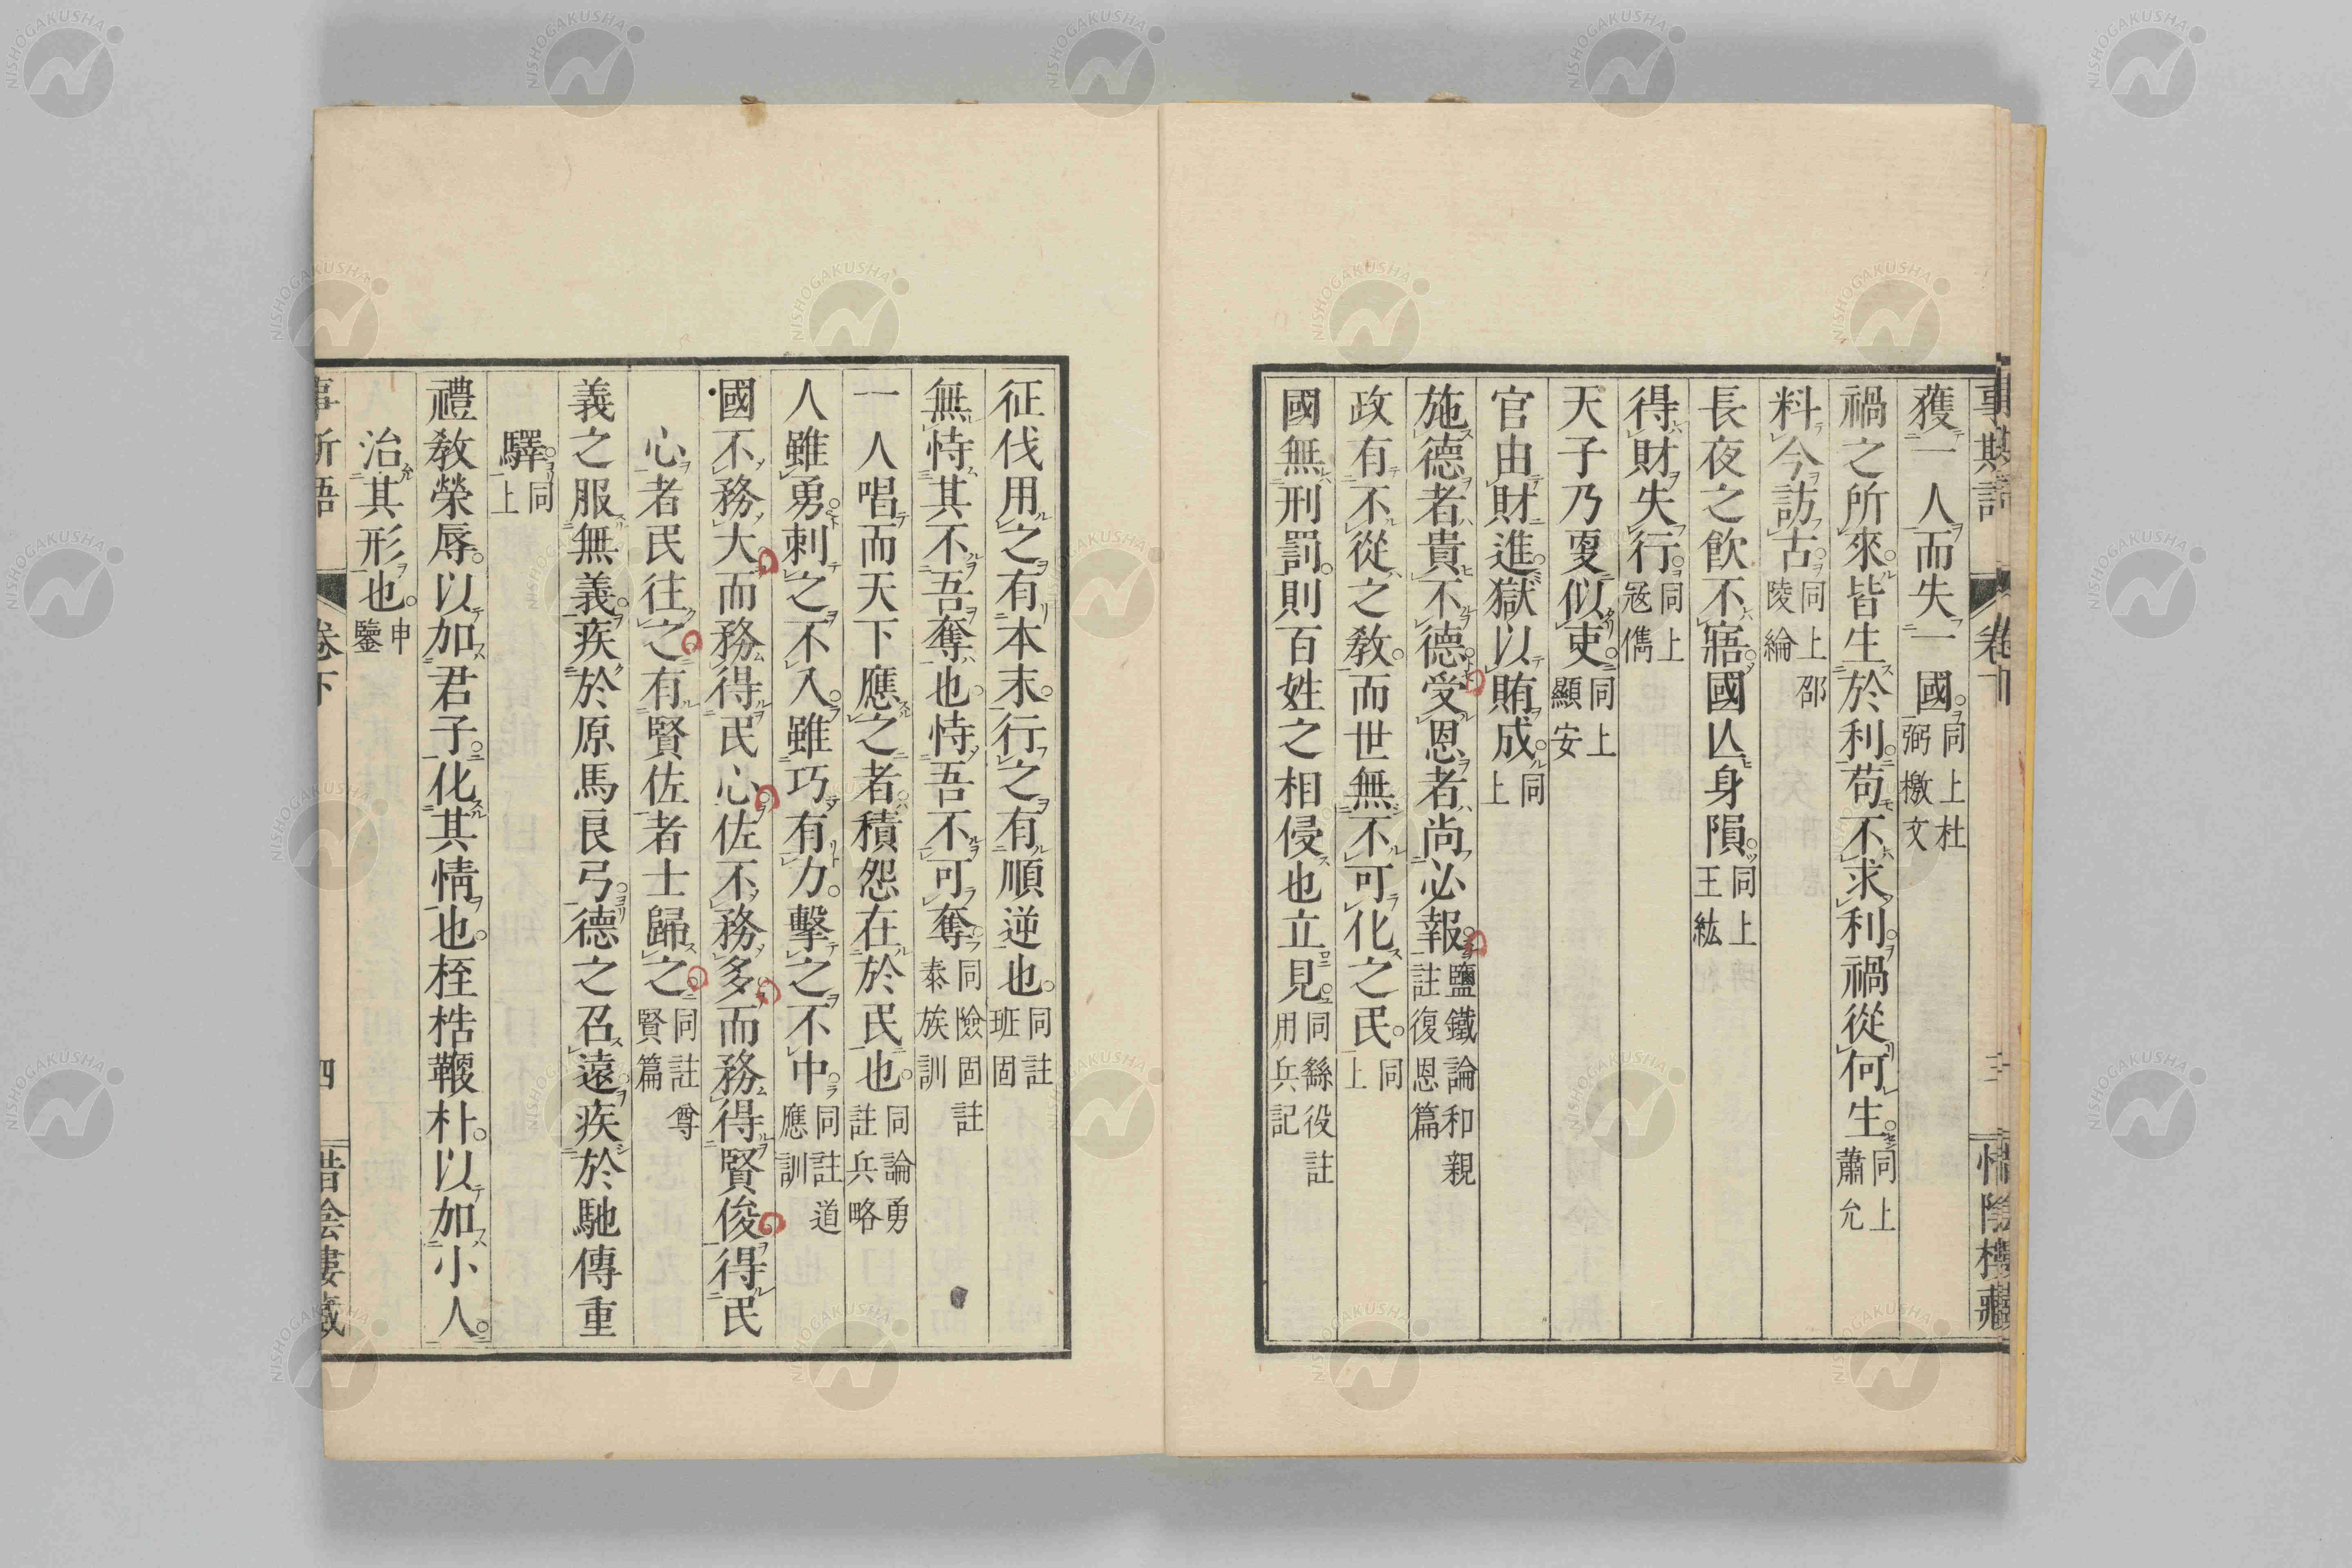 獲一人而失一國。同上杜弼檄文
禍之所來。皆生於利。苟不求利。禍從何生。同上蕭允
料今訪古。同上邵陵綸
長夜之飲不寤。國亾身隕。同上王紘
得財失行。同上寇儁
天子乃更似吏。同上顯安
官由財進。獄以賄成。同上
施德者貴不德。受恩者尚必報。鹽鐵論和親註復恩篇
政有不從之敎。而世無不可化之民。同上
國無刑罰。則百姓之相侵也立見。同繇役註用兵記
征伐用之有本末。行之有順逆也。同註班固
無恃其不吾奪也。恃吾不可奪。同險固註泰族訓
一人唱而天下應之者。積怨在於民也。同論勇註兵略
人雖勇。刺之不入。雖巧有力。擊之不中。同註道應訓
國不務大而務得民心。佐不務多而務得賢俊。得民
心者民往之。有賢佐者士歸之。同註尊賢篇
義之服無義。疾於原馬良弓。德之召遠。疾於馳傳重
驛。同上
禮敎榮辱。以加君子。化其情也。桎梏鞭朴。以加小人。
治其形也。申鑒
卷下
四